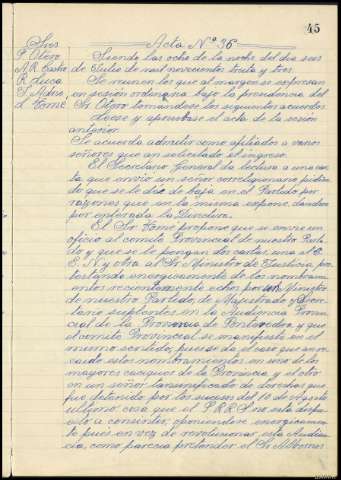 45
Sres Acta Nº 36
P. Otero Siendo las ocho de la noche del dia seis
de Julio de mil novecientos treinta y tres.
Se reunen los que al margen se expresan
en sesión ordinaria bajo la presidencia del
Sr Otero tomandose los siguientes acuerdos
Leese y apruebase el acta de la sesión
anterior.
Se acuerda admitir como afiliados a varios
señores que an solicitado el ingreso.
El Secretario General da lectura a una car
ta que envia un señor correligionario pidien
do que se le dé de baja en el Partido por
razones que en la misma expone, dandose
por enterada la Directiva.
El Sr Tomé propone que se envie un
oficio al comité Provincial de nuestro Parti
do y que se le pongan dos cartas, una al C.
E. N y otra al Sr Ministro de Justicia, pro
testando energicamente de los nombrami
entos recientemente echos por un Ministro
de nuestro Partido, de Magistrado y Secre
tario suplentes en la Audiencia Provin
cial de la Provincia de Pontevedra, y que
el comité Provincial se manifieste en el
mismo sentido, puesto da el caso que an re
caido estos nombramientos en uno de los
mayores caciques de la Provincia, y el otro
en un señor tan significado de derechas que
fue detenido por los sucesos del 10 de Agosto
ultimo cosa que el P.R.R.S no esta dispu
esto a consentir, oponiendose energicamen
te pués en vez de revolucionar esta Audien
cia, como parecia pretender el Sr Albornoz